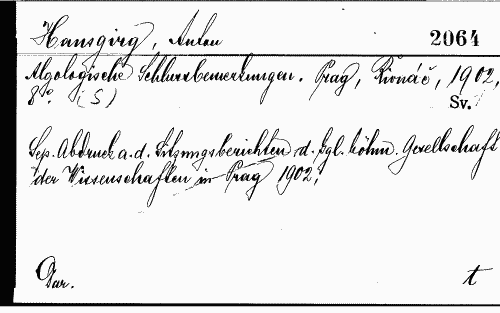 Hansgirg, Anton 2064
Algologische Schlussbemerkungen. Prag, Řivnáč, 1902,
8°. (S) Sv.
Sep. Abdruck a. d. Sitzungsberichten d. kgl. böhm. Gesellschaft
der Wissenschaften in Prag 1902.
Dar. t